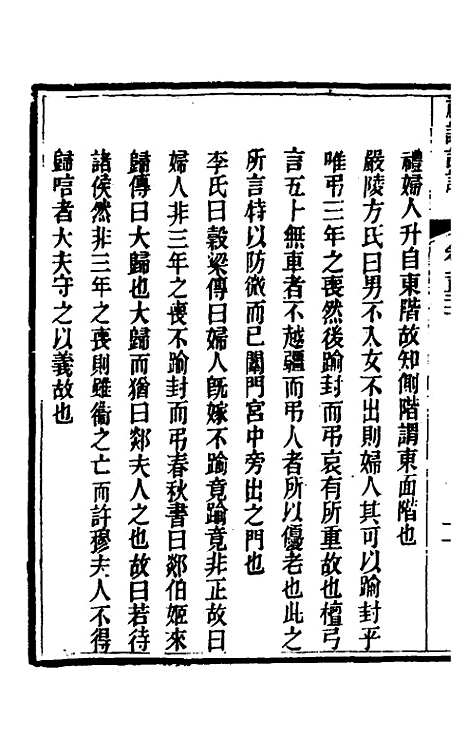 禮婦人升自東階故知側階謂東面階也
嚴陵方氏曰男不入女不出則婦人其可以踰封乎
唯弔三年之喪然後踰封而弔哀有所重故也檀弓
言五十無車者不越疆而弔人者所以優老也此之
所言特以防微而已闈門宮中旁出之門也
李氏曰穀梁傳曰婦人旣嫁不踰竟踰竟非正故曰
婦人非三年之喪不踰封而弔春秋書曰郯伯姬來
歸傳曰大歸也大歸而猶曰郯夫人之也故曰若待
諸侯然非三年之喪則雖衞之亡而許穆夫人不得
歸唁者大夫守之以義故也